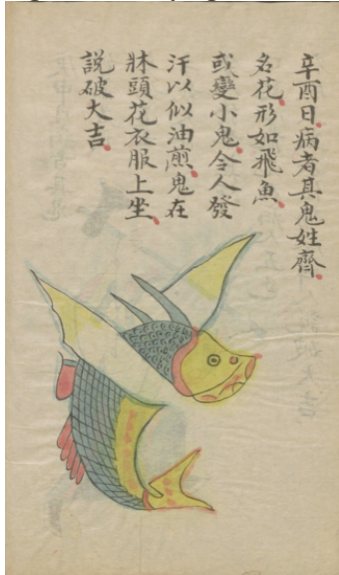 辛酉日病者其鬼姓齊
名花形如飛魚
或變小鬼令人發
汗以似油煎鬼在
牀頭花衣服上坐
說破大吉